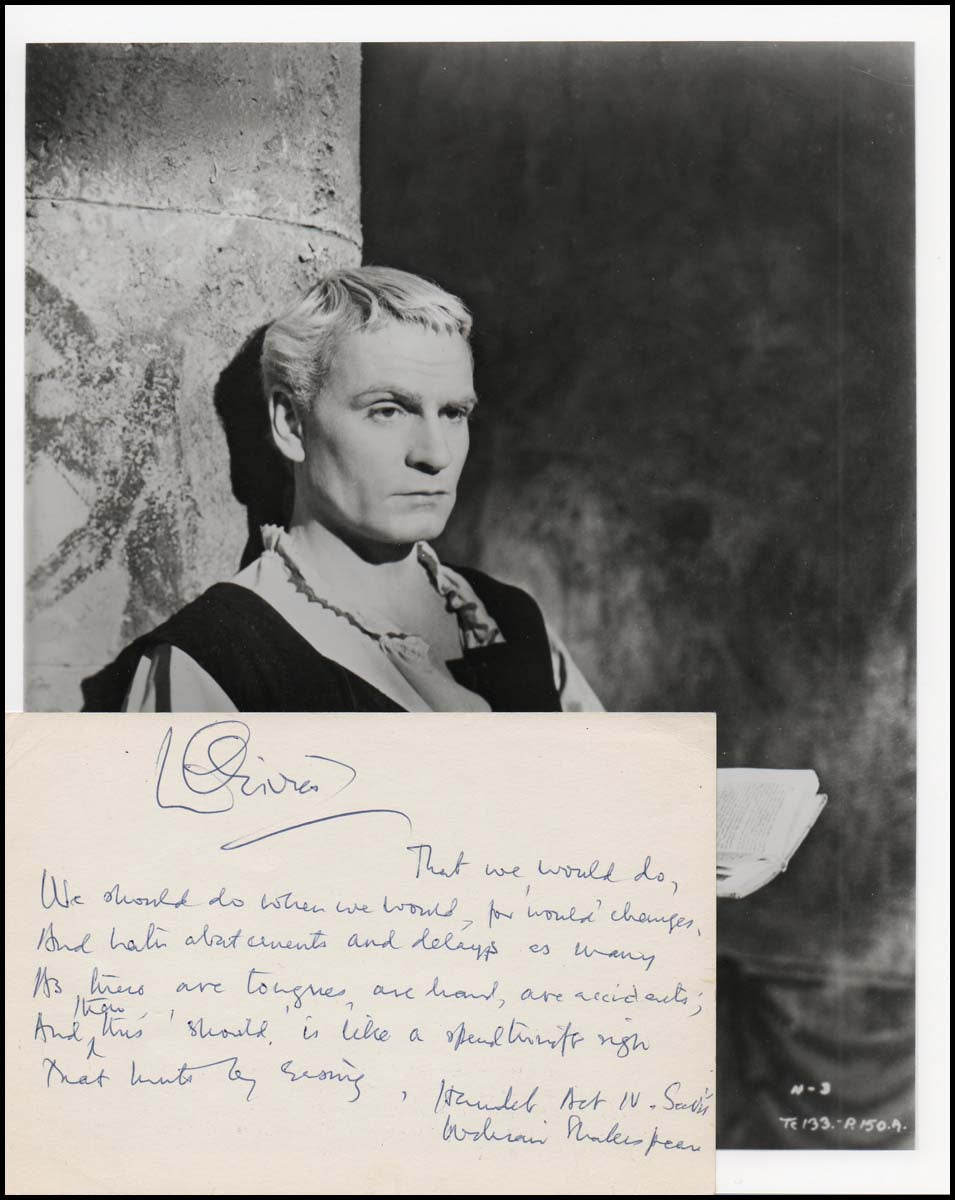 LOlivier
That we would do,
We should do when we would, for 'would' changes,
And hath abatements and delays as many
As there are tongues, are hand, are accidents;
then
And this 'should' is like a spendthrift sigh
That hurts by easing,
Hamlet Act IV - Sc vii
William Shakespeare
H-3
Tc 133.-P.150.A.